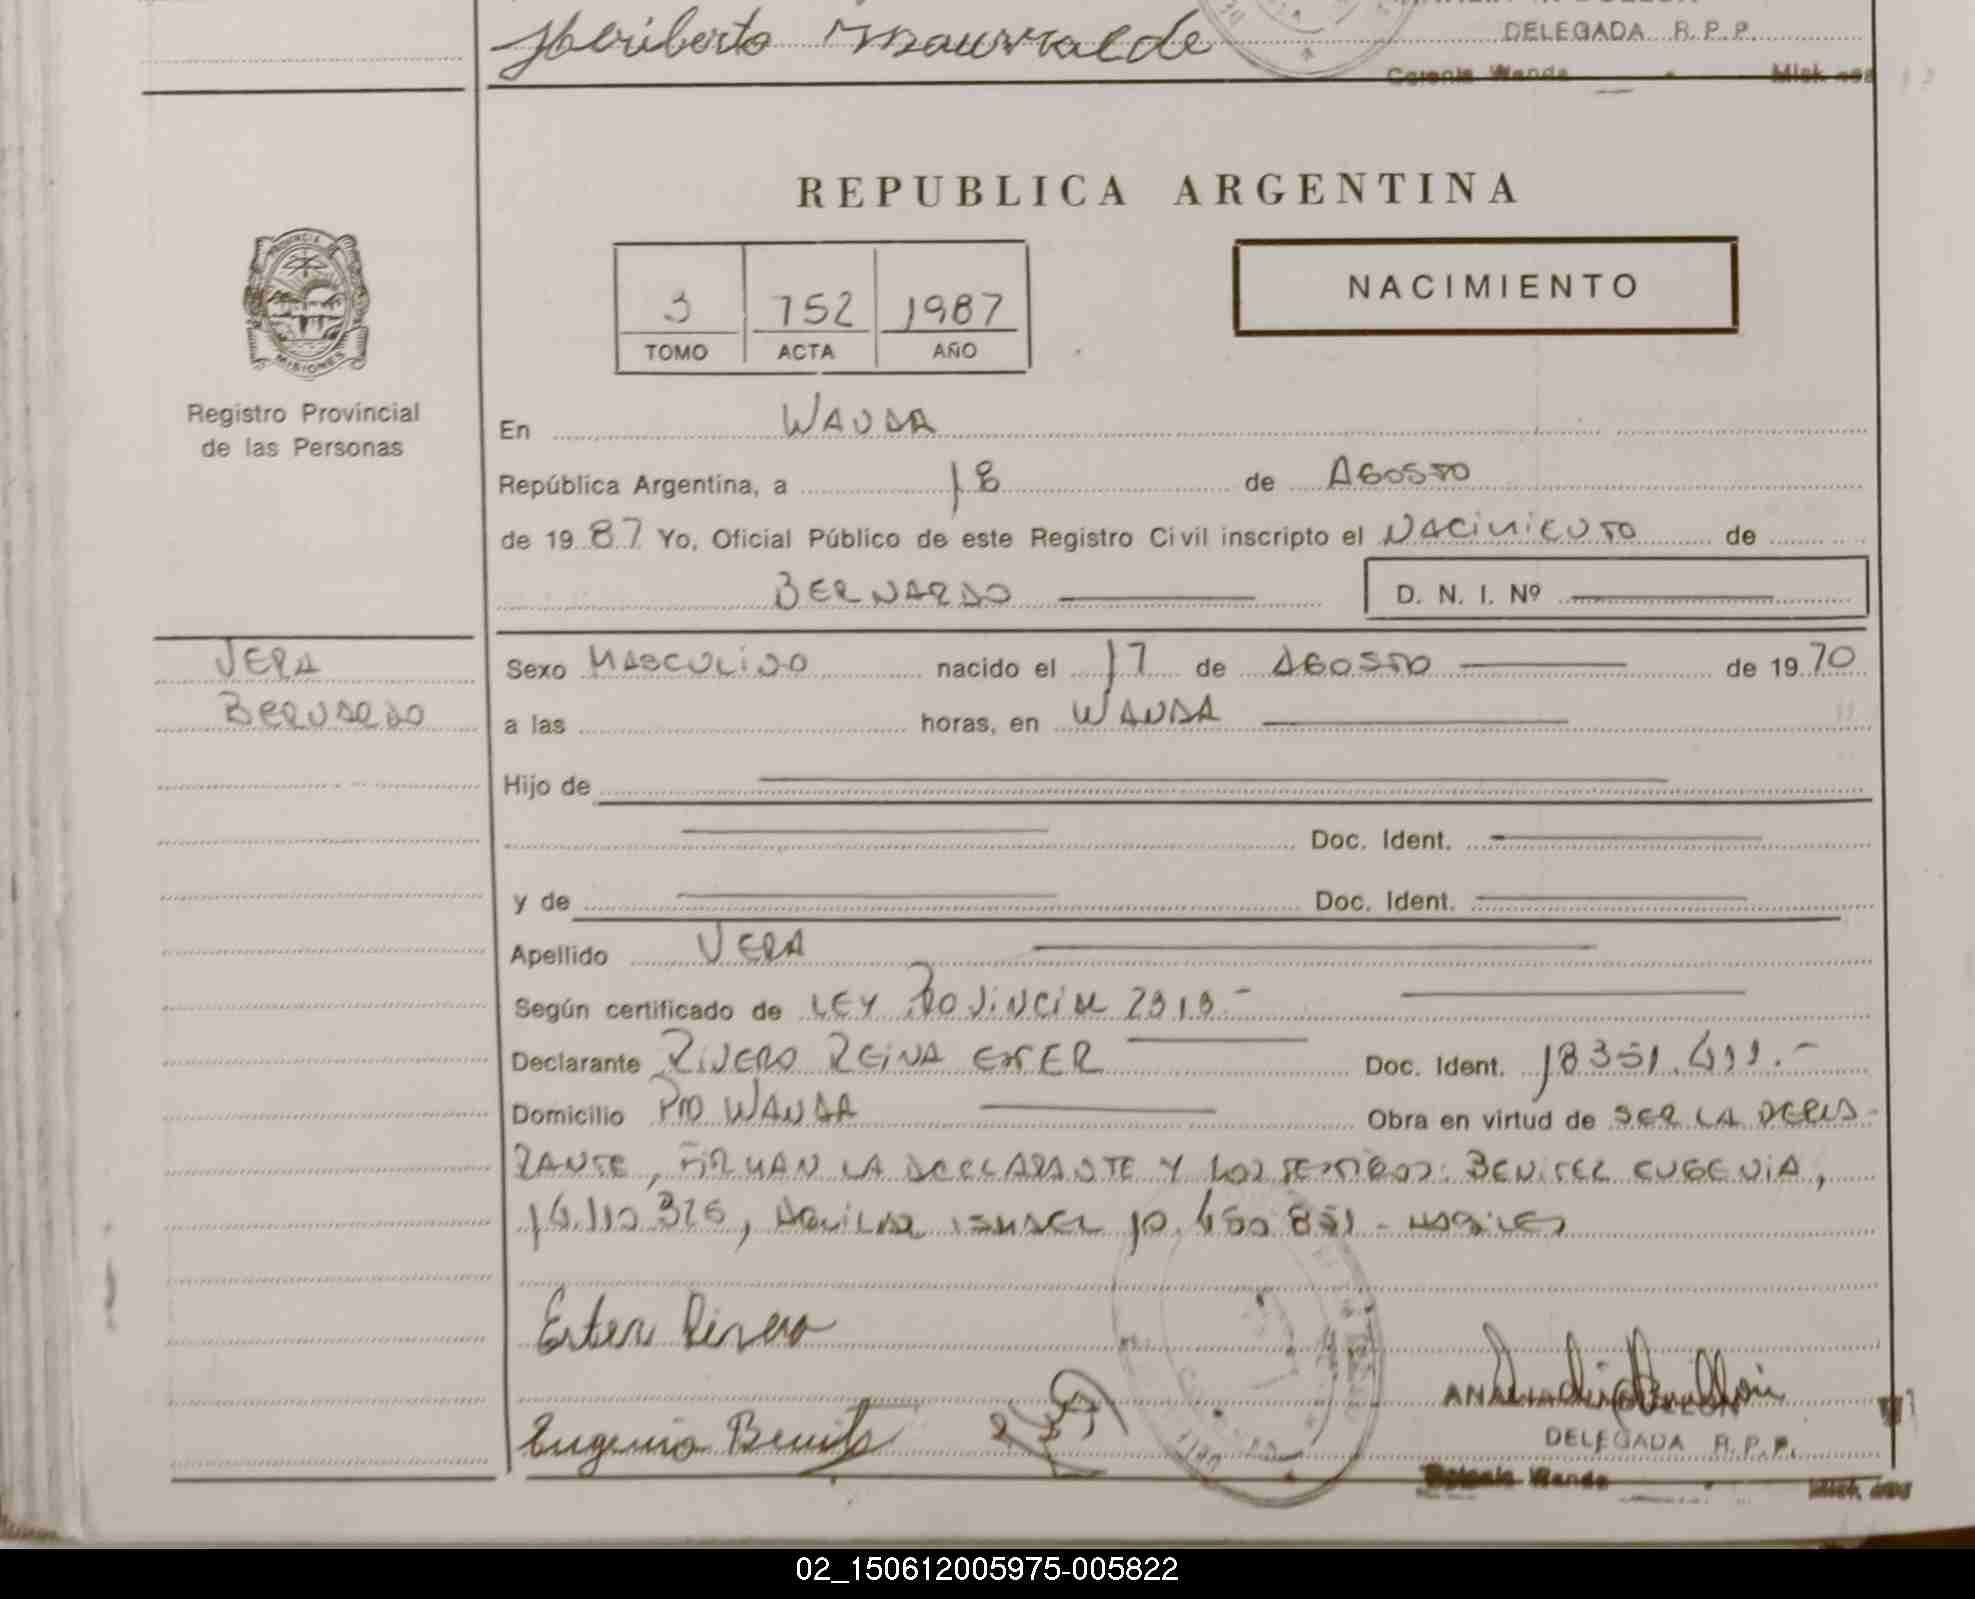 Heriberto
DELEGADA R. P. P.
Colonia Wanda
REPUBLICA ARGENTINA
PROVINCIA DE
MISIONES
3 752 1987
TOMO ACTA AÑO
NACIMIENTO
Registro Provincial
de las Personas
En WANDA
República Argentina, a 18 de AGOSTO
de 19 87 Yo, Oficial Público de este Registro Civil inscripto el NACIMIENTO de
BERNARDO D. N. I. Nº
VERA
BERNARDO
Sexo MASCULINO nacido el 17 de AGOSTO de 19 70
a las horas, en WANDA
Hijo de
Doc. Ident.
y de Doc. Ident.
Apellido VERA
Según certificado de LEY PROVINCIAL
Declarante RIVERO REINA ESTER Doc. Ident.
Domicilio PTO WANDA Obra en virtud de SER LA DECLA-
RANTE, FIRMAN LA DECLARANTE Y LOS TESTIGOS: BENITEZ EUGENIA,
Ester Rivero
Eugenia Benitez
DELEGADA R. P. P.
Colonia Wanda
02_150612005975-005822